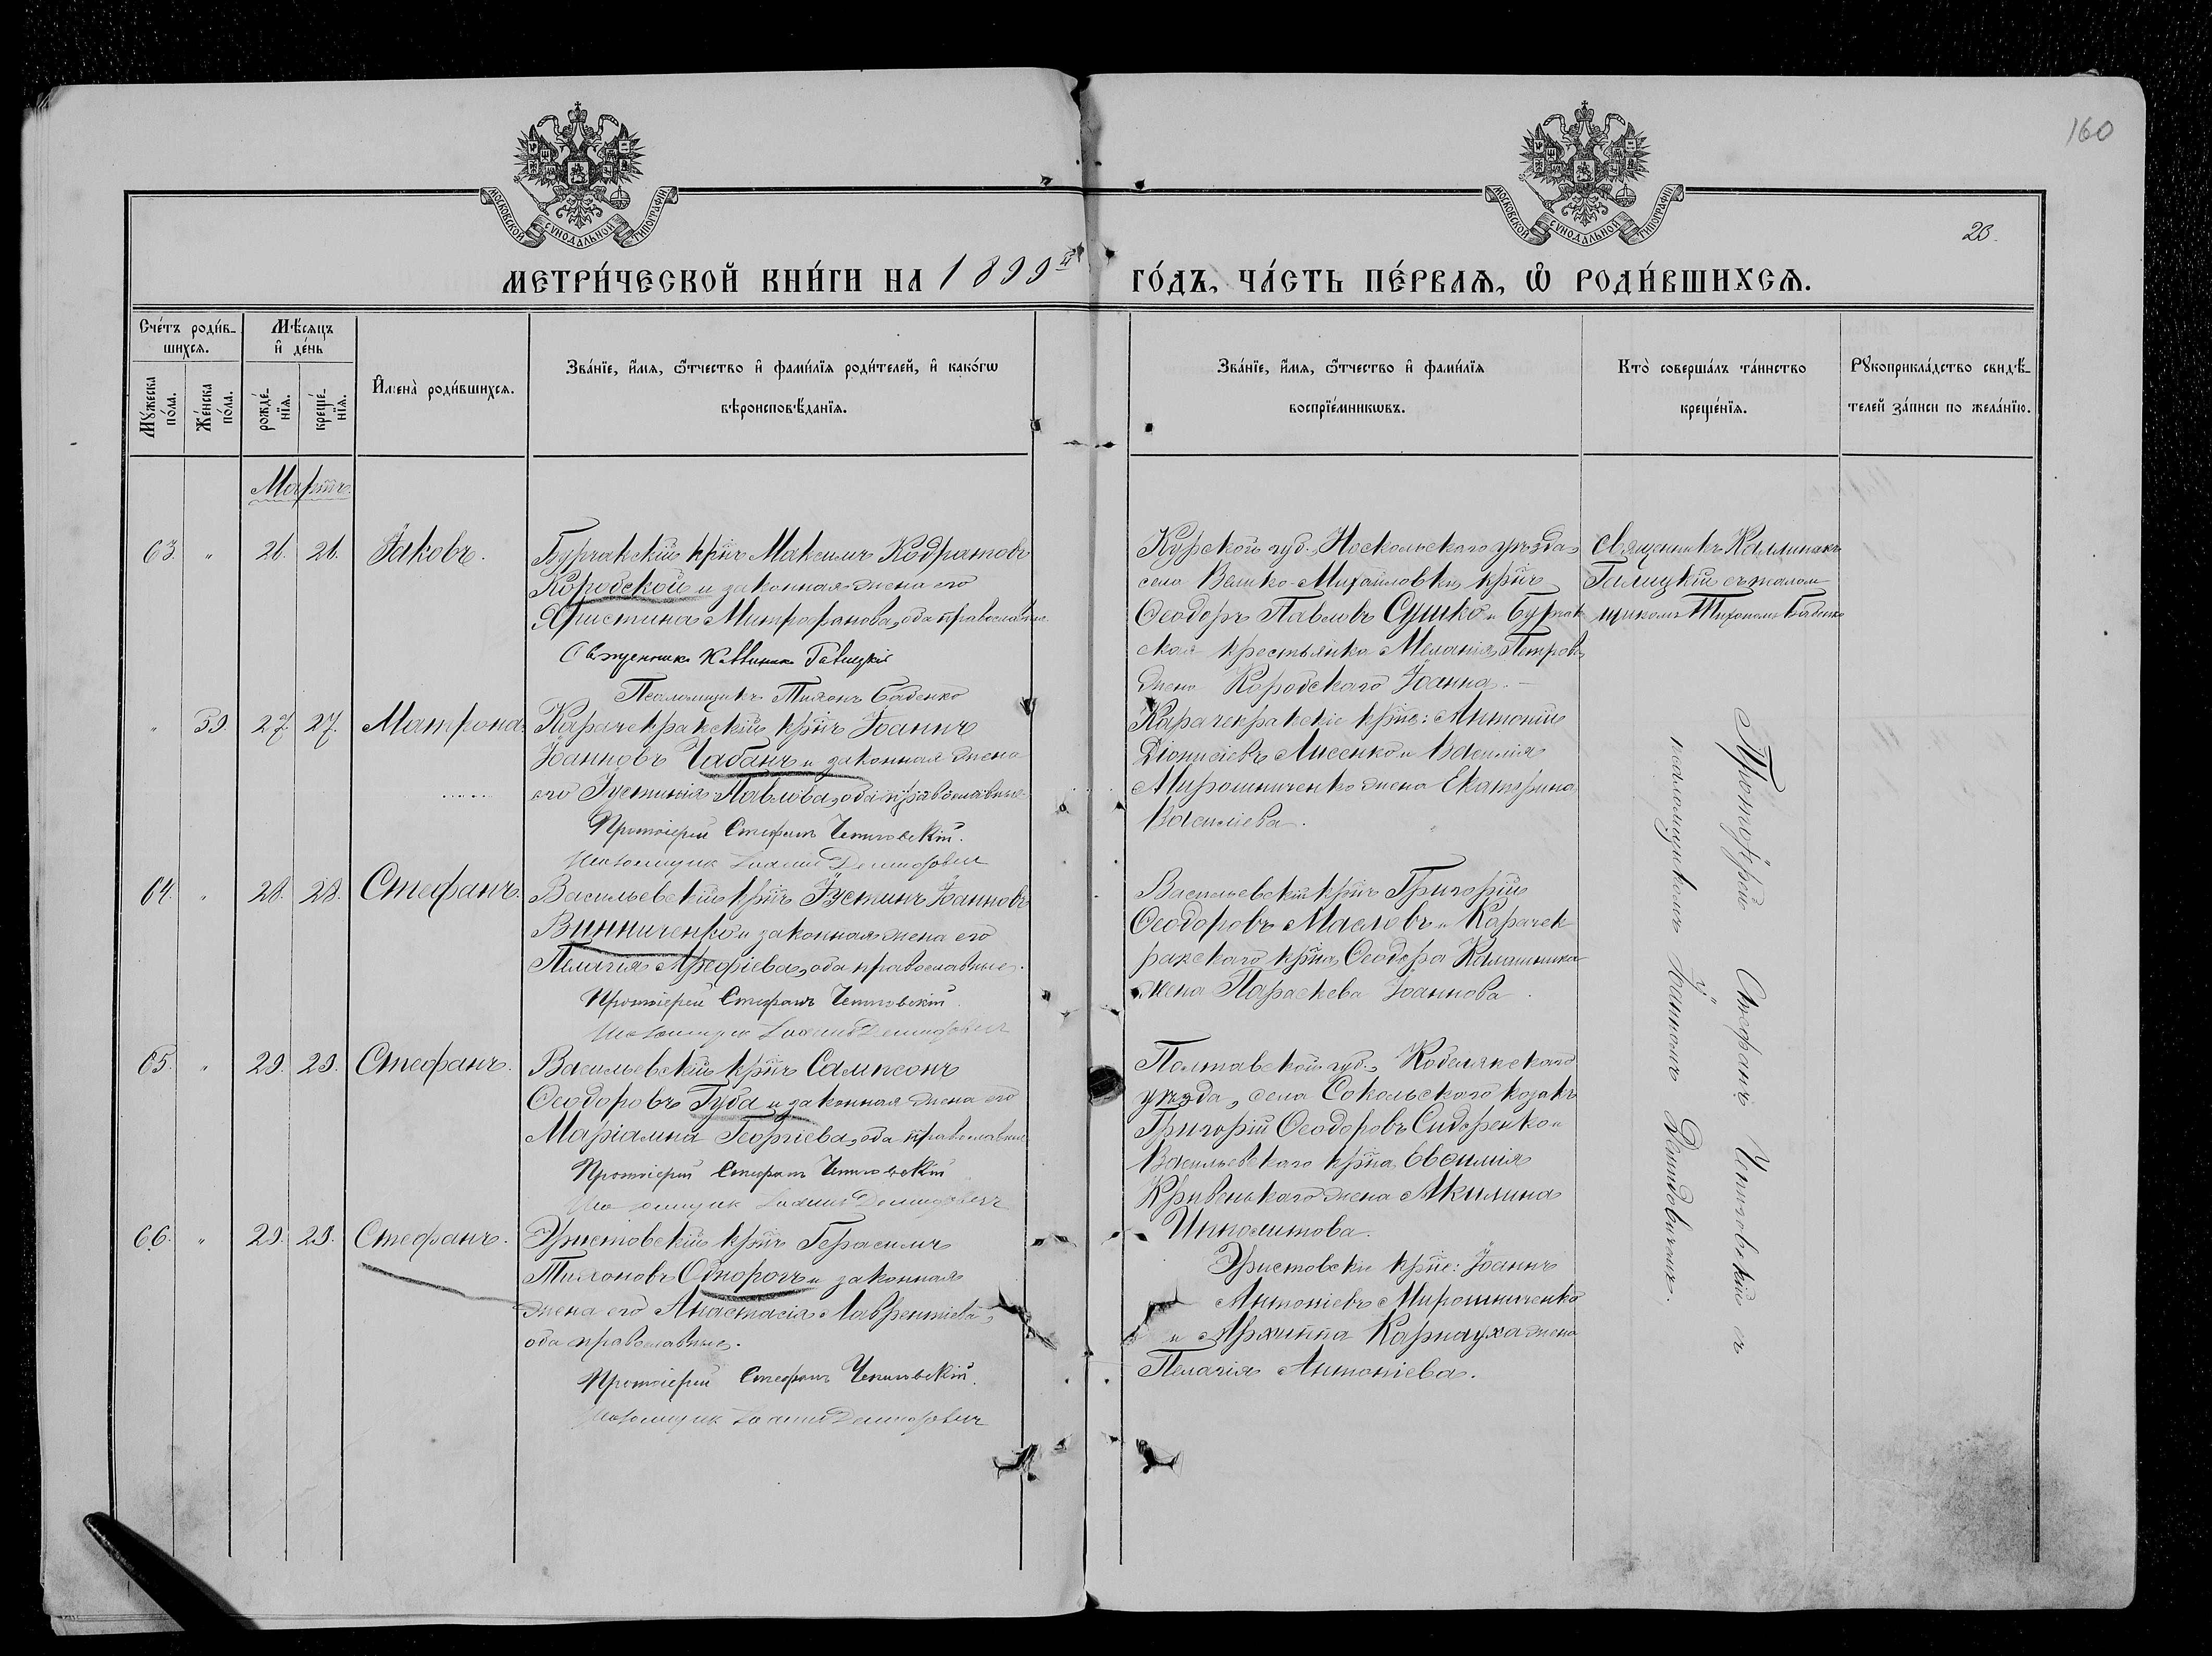 160
МОСКОВСКОЙ СУНОДАЛЬНОЙ ТИПОГРАФІИ
МОСКОВСКОЙ СУНОДАЛЬНОЙ ТИПОГРАФІИ
20.
МЕТРИ́ЧЕСКОЙ КНИ́ГИ НА 1899й ГО́ДЪ, ЧА́СТЬ ПЕ́РВАѦ, Ѡ РОДИ́ВШИХСѦ.
Сче́тъ роди́в-
шихсѧ.
Мѣ́сѧцъ
и҆ де́нь
Мꙋ́жеска
по́ла.
Же́нска
по́ла.
рожде́-
нїѧ.
креще́-
нїѧ.
И҆мена̀ роди́вшихсѧ.
Зва́нїе, и҆́мѧ, ѻ҆́тчество и҆ фами́лїѧ роди́телей, и҆ како́гѡ
вѣроисповѣ́данїѧ.
Зва́нїе, и҆́мѧ, ѻ҆́тчество и҆ фами́лїѧ
воспрїе́мникѡвъ.
Кто̀ соверша́лъ та́инство
креще́нїѧ.
Рꙋкоприкла́дство свидѣ́-
телей за́писи по жела́нїю.
Мартъ
63. " 26. 26. Іаковъ.
Бурчакскій кр҃нъ Максимъ Кодратовъ
Кородской и законная жена его
Христина Митрофанова, оба православные
Священникъ Каллиникъ Галицкій
Псаломщикъ Тихонъ Бабенко
Курской губ., Носкольского уѣзда
села Велико-Михайловки, кр҃нъ
Ѳеодоръ Павловъ Сушко и Бурчак
ская крестьянка Меланія Петрова
жена Кородского Іоанна.
Священникъ Каллиникъ
Галицкій съ псалом
щикомъ Тихономъ Бабенко
" 59. 27. 27. Матрона.
Карачекракскій кр҃нъ Іоаннъ
Іоанновъ Чабанъ и законная жена
его Іустинія Павлова, оба православные
Протоіерей Стефанъ Чепиговскій.
Псаломщик Іоаннъ Демидович
Карачекракскіе кр҃не: Антоній
Діонисіевъ Лисенко и Василія
Мирошниченко жена Екатерина
Васильева.
64. " 28. 28. Стефанъ.
Васильевскій кр҃нъ Іустинъ Іоанновъ
Винниченко и законная жена его
Пелагія Арефіева, оба православные.
Протоіерей Стефанъ Чепиговскій.
Псаломщик Іоаннъ Демидович
Васильевскій кр҃нъ Григорій
Ѳеодоровъ Масловъ и Карачек
ракского кр҃на Ѳеодора
жена Параскева Іоаннова.
65. " 29. 29. Стефанъ.
Васильевскій кр҃нъ Сампсонъ
Ѳеодоровъ Губа и законная жена его
Маріамна Георгіева, оба православные
Протоіерей Стефанъ Чепиговскій
Псаломщик Іоаннъ Демидович
Полтавской губ., Кобелякского
уѣзда, села Сокольского козакъ
Григорій Ѳеодоровъ Сидоренко и
Васильевского кр҃на Евѳимія
Кривицкаго жена Акилина
Ипполитова.
66. " 29. 29. Стефанъ.
Эристовскій кр҃нъ Герасимъ
Тихоновъ Однорогъ и законная
жена его Анастасія Лаврентіева,
оба православные.
Протоіерей Стефанъ Чепиговскій.
Псаломщик Іоаннъ Демидович
Эристовскіе кр҃не: Іоаннъ
Антоніевъ Мирошниченко
и Архиппа Карнауха жена
Пелагія Антоніева.
Протоіерей Стефанъ Чепиговскій съ
псаломщикомъ Іоанномъ Демидовичемъ.